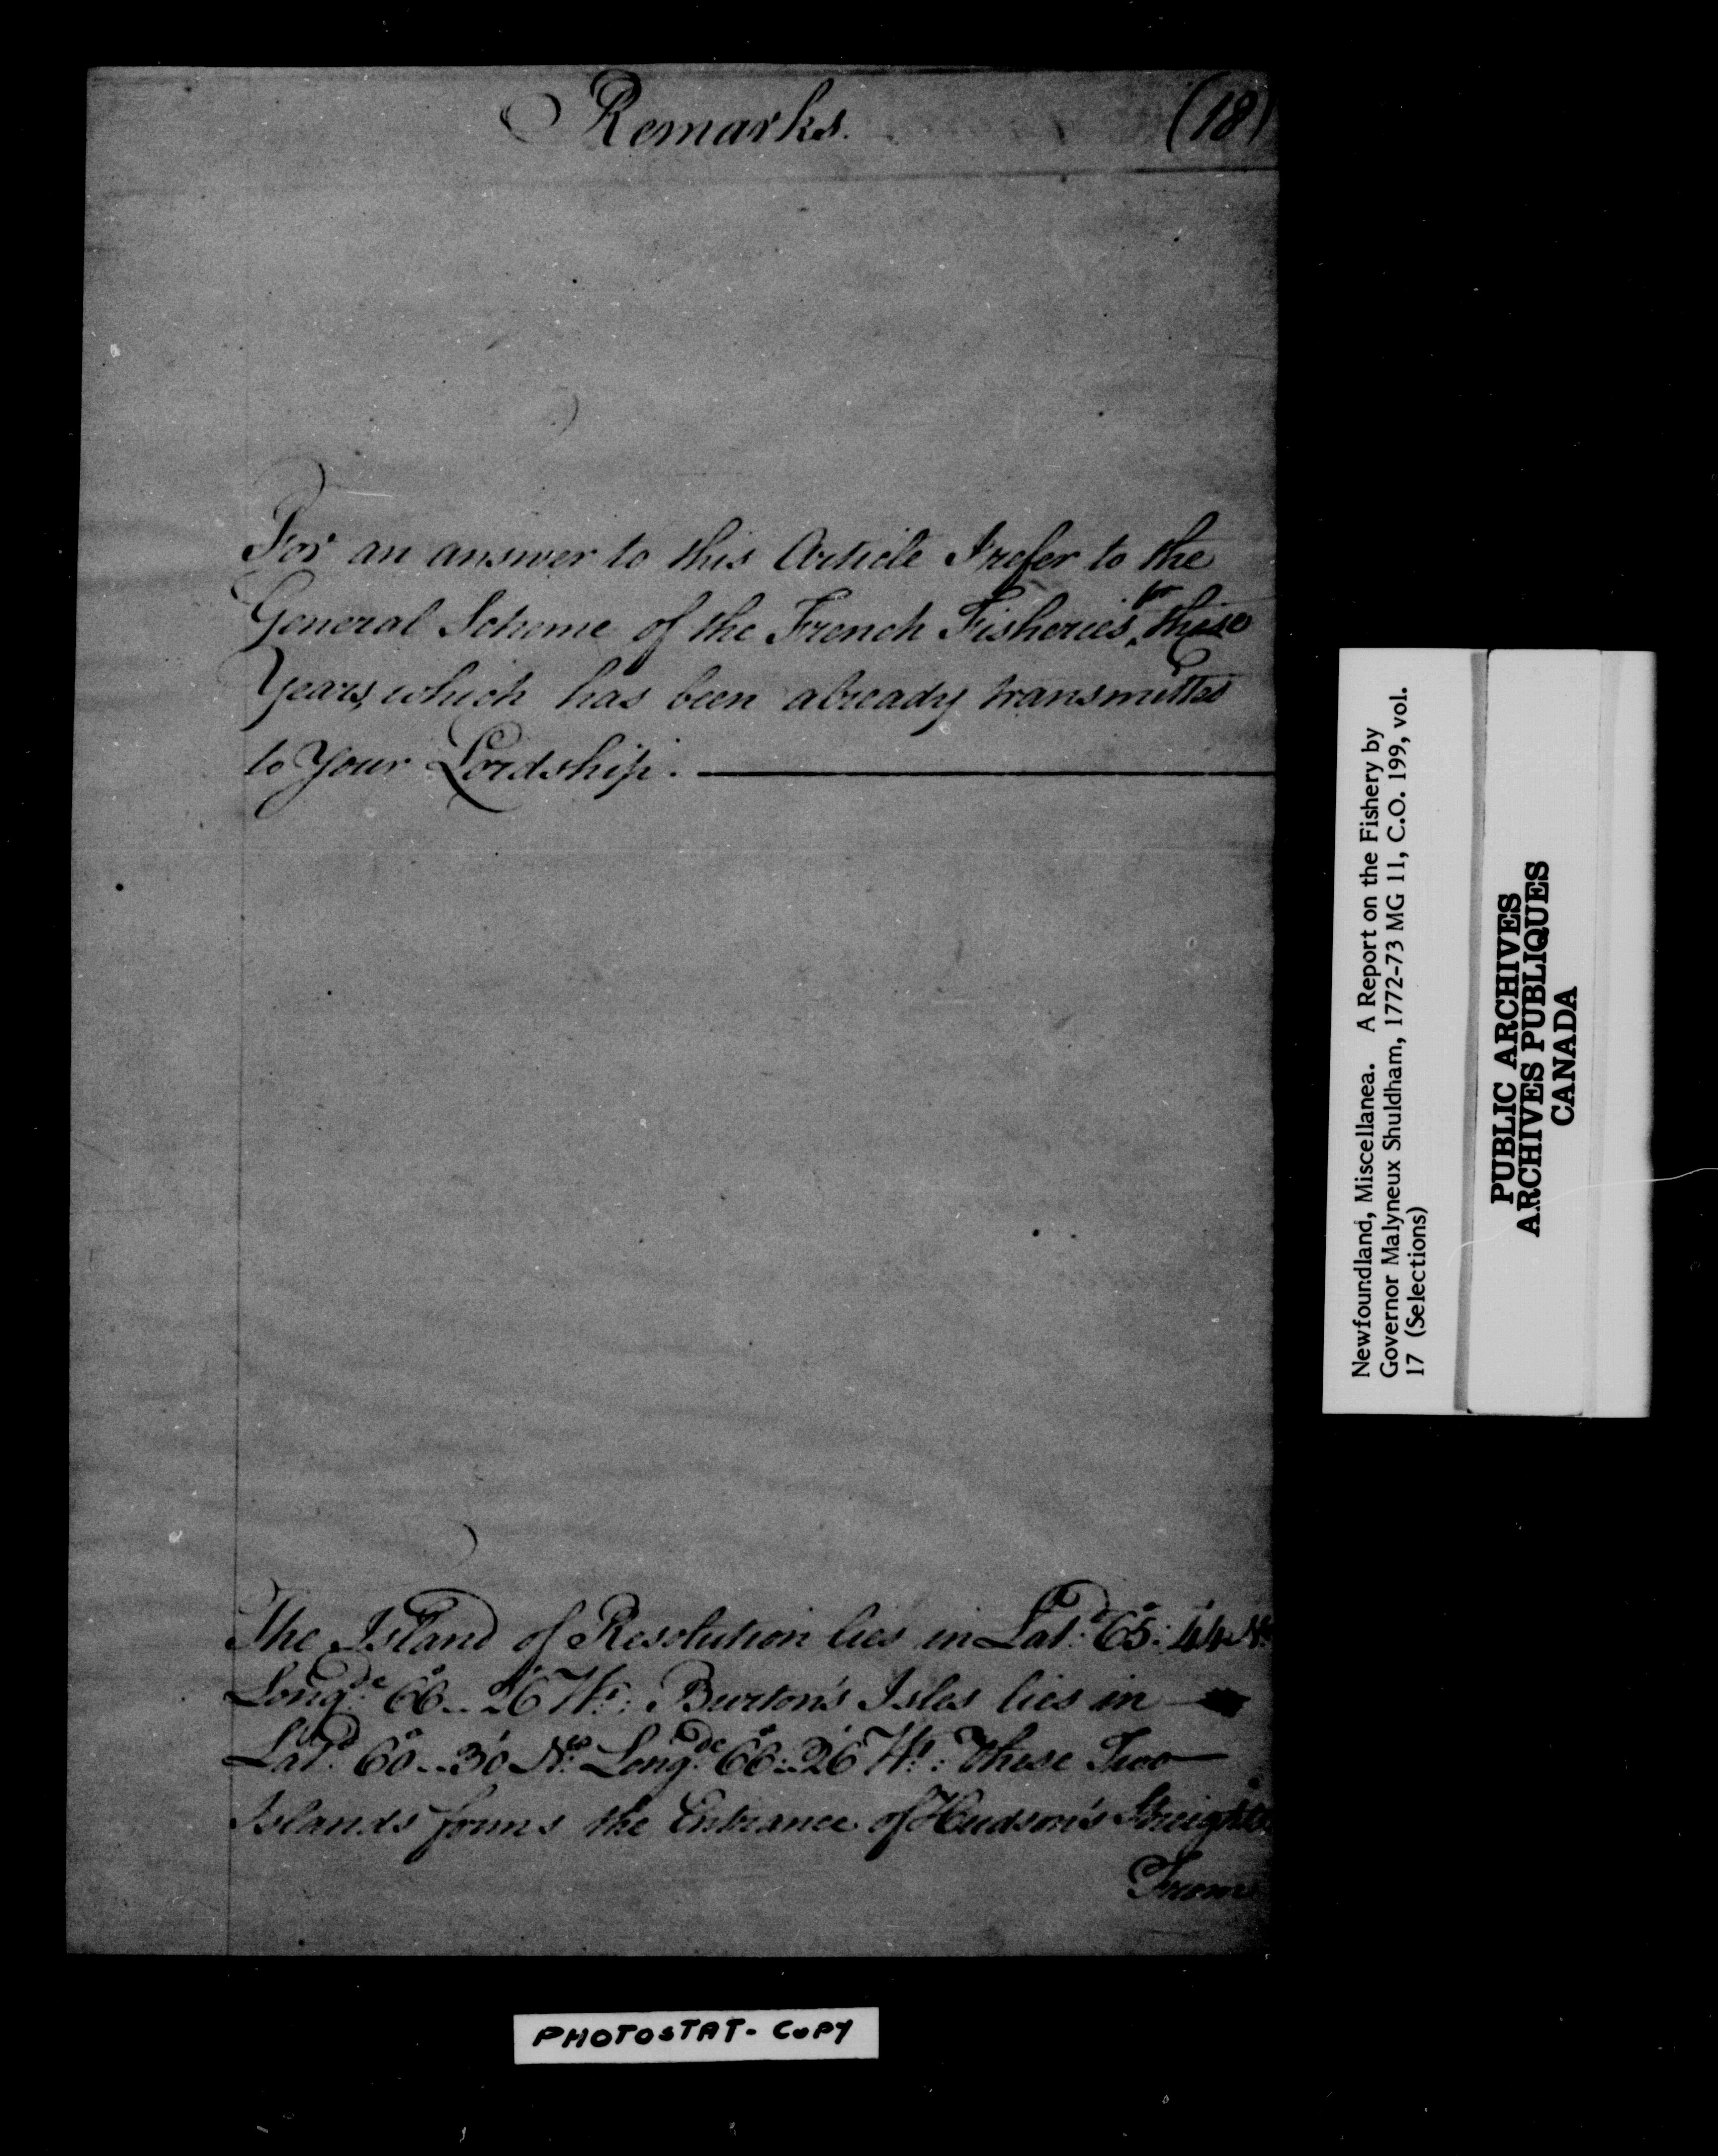 Remarks.
(18)
For an answer to this Article I refer to the
General Scheme of the French Fisheries, for these
Years, which has been already transmitted
to Your Lordship.
The Island of Resolution lies in Latd. 65°: 44' No.
Longde. 66°.. 26' Wt: Burton's Isles lies in
Latd. 60°.. 30' No. Longde. 66°: 26' Wt: these Two
Islands forms the Entrance of Hudson's Streights.
From
Newfoundland, Miscellanea. A Report on the Fishery by
Governor Malyneux Shuldham, 1772-73 MG 11, C.O. 199, vol.
17 (Selections)
PUBLIC ARCHIVES
ARCHIVES PUBLIQUES
CANADA
PHOTOSTAT- COPY